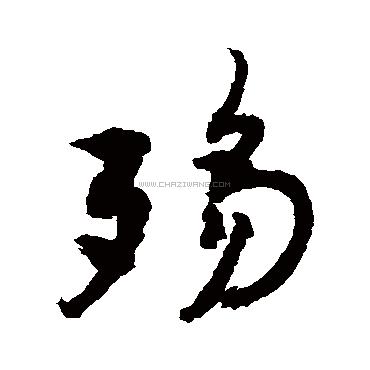 殇
WWW.CHAZIWANG.COM